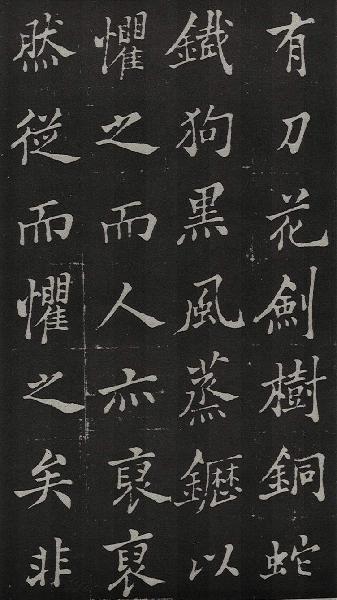 有刀花劍樹銅蛇
鐵狗黑風蒸鑩以
懼之而人亦裒裒
然從而懼之矣非